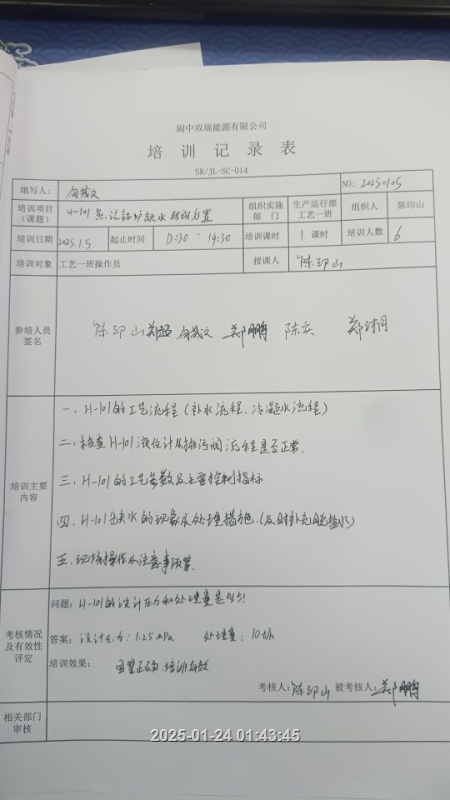 阆中双瑞能源有限公司
培训记录表
SR/JL-SC-014
填写人： NO: 20250105
培训项目（课题） H-101蒸汽锅炉缺水 处置 组织实施部门 生产运行部工艺一班 组织人 陈印山
培训日期 2025.1.5 起止时间 13:30~14:30 培训课时 1课时 培训人数 6
培训对象 工艺一班操作员 授课人 陈印山
参培人员签名 陈印山 郑鹏
培训主要内容
一、H-101的工艺流程（补水流程、冷凝水流程）
二、检查H-101液位计及排污阀流程是否正常.
三、H-101的工艺参数及主要控制指标
四、H-101缺水的现象及处理措施（及时补充脱盐水）
五、现场操作及注意事项等
考核情况及有效性评定
问题：H-101的设计压力和处理量是多少!
答案：设计压力：1.25mPa 处理量：10t/h
培训效果：回答正确，培训有效
考核人：陈印山 被考核人：郑鹏
相关部门审核
2025-01-24 01:43:45